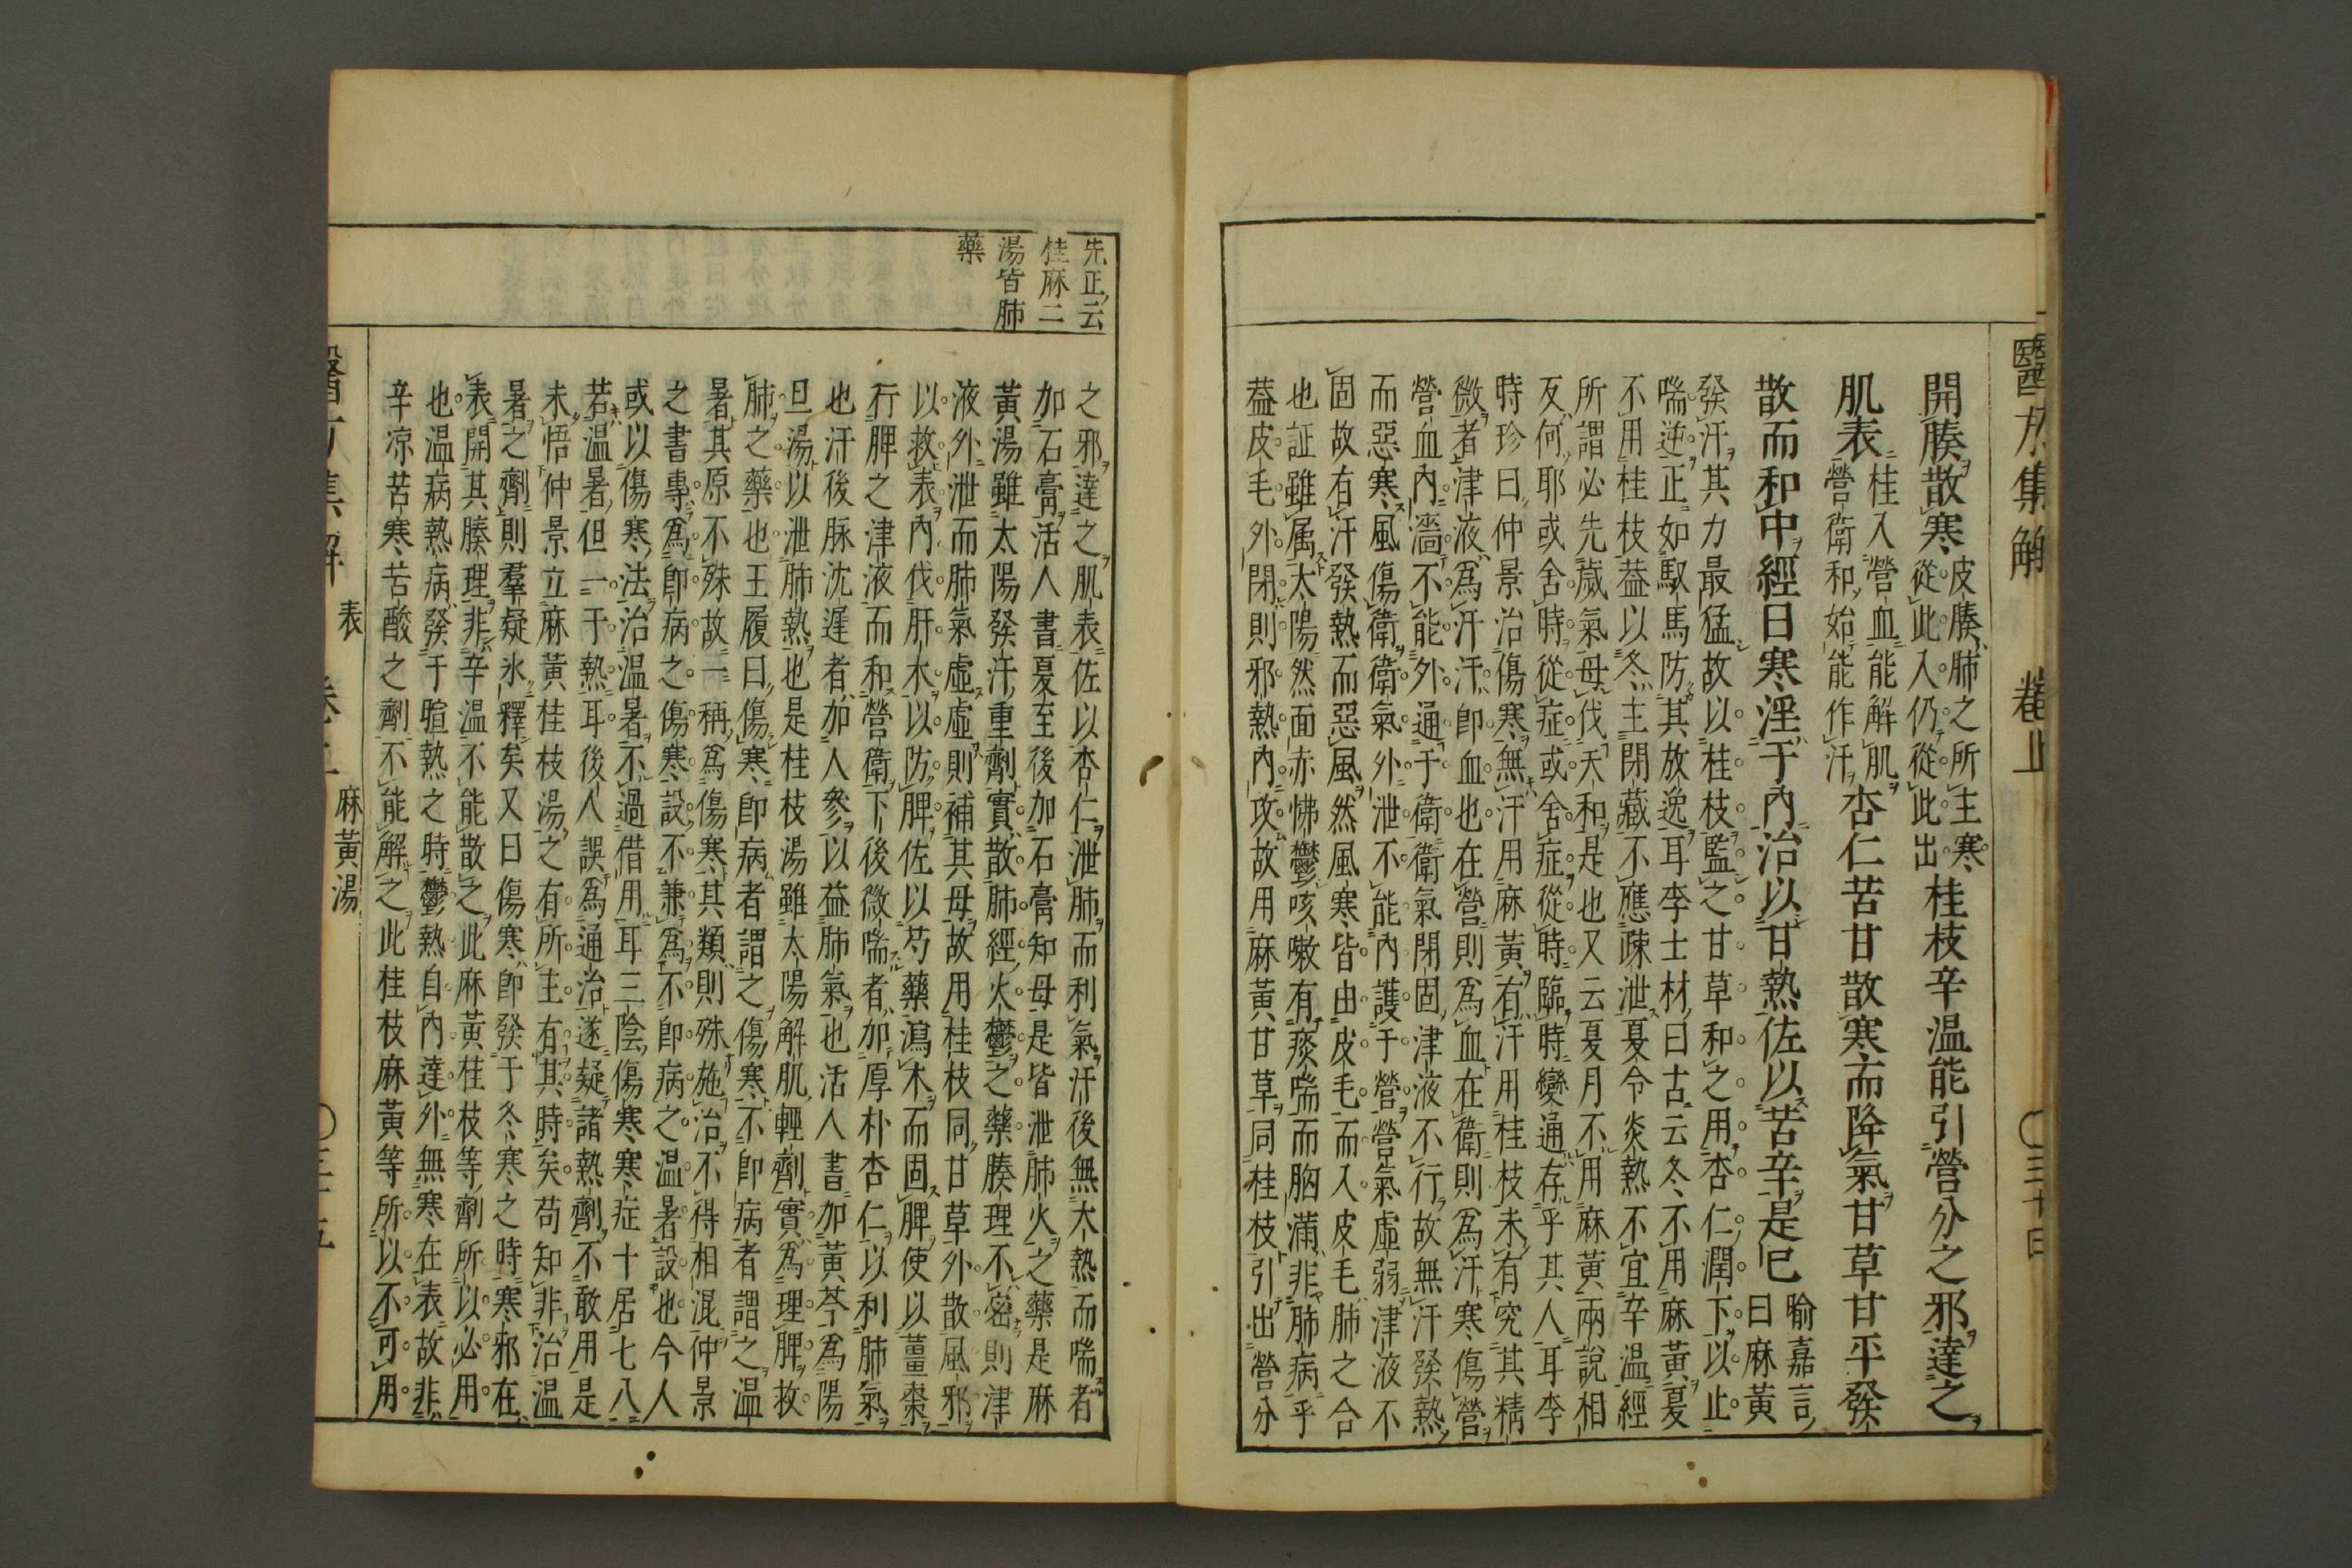 醫方集解
卷上
〇三十四
開腠散寒皮腠肺之所主寒從此入仍從此出桂枝辛温能引營分之邪達之
肌表桂入營血能解肌營衛和始能作汗杏仁苦甘散寒而降氣甘草甘平發
散而和中經曰寒淫于內治以甘熱佐以苦辛是已喻嘉言曰麻黃
發汗其力最猛故以桂枝監之甘草和之用杏仁潤下以止
喘逆正如馭馬防其放逸耳李士材曰古云冬不用麻黃夏
不用桂枝葢以冬主閉藏不應疎泄夏令炎熱不宜辛温經
所謂必先歲氣毋伐天和是也又云夏月不用麻黃兩說相
反何耶或舍時從症或舍症從時臨時變通存乎其人耳李
時珍曰仲景治傷寒無汗用麻黃有汗用桂枝未有究其精
微者津液為汗汗即血也在營則為血在衛則為汗寒傷營
營血內濇不能外通于衛衛氣閉固津液不行故無汗發熱
而惡寒風傷衛衛氣外泄不能內護于營營氣虛弱津液不
固故有汗發熱而惡風然風寒皆由皮毛而入皮毛肺之合
也証雖属太陽然面赤怫鬱咳嗽有痰喘而胸滿非肺病乎
葢皮毛外閉則邪熱內攻故用麻黃甘草同桂枝引出營分
先正云
桂麻二
湯皆肺
藥
之邪達之肌表佐以杏仁泄肺而利氣汗後無大熱而喘者
加石膏活人書夏至後加石膏知母是皆泄肺火之藥是麻
黃湯雖太陽發汗重劑實散肺經火鬱之藥腠理不密則津
液外泄而肺氣虛虛則補其母故用桂枝同甘草外散風邪
以救表內伐肝木以防脾佐以芍藥瀉木而固脾使以薑棗
行脾之津液而和營衛下後微喘者加厚朴杏仁以利肺氣
也汗後脉沈遲者加人參以益肺氣也活人書加黃芩為陽
旦湯以泄肺熱也是桂枝湯雖太陽解肌輕劑實為理脾救
肺之藥也王履曰傷寒即病者謂之傷寒不即病者謂之温
暑其原不殊故一稱為傷寒其類則殊施治不得相混仲景
之書專為即病之傷寒設不兼為不即病之温暑設也今人
或以傷寒法治温暑不過借用耳三陰傷寒寒症十居七八
若温暑但一于熱耳後人誤為通治遂疑諸熱劑不敢用是
未悟仲景立麻黃桂枝湯之有所主有其時矣苟知非治温
暑之劑則羣疑氷釋矣又曰傷寒即發于冬寒之時寒邪在
表開其腠理非辛温不能散之此麻黃桂枝等劑所以必用
也温病熱病發于暄熱之時鬱熱自內達外無寒在表故非
辛凉苦寒苦酸之劑不能解之此桂枝麻黃等所以不可用
表
麻黃湯